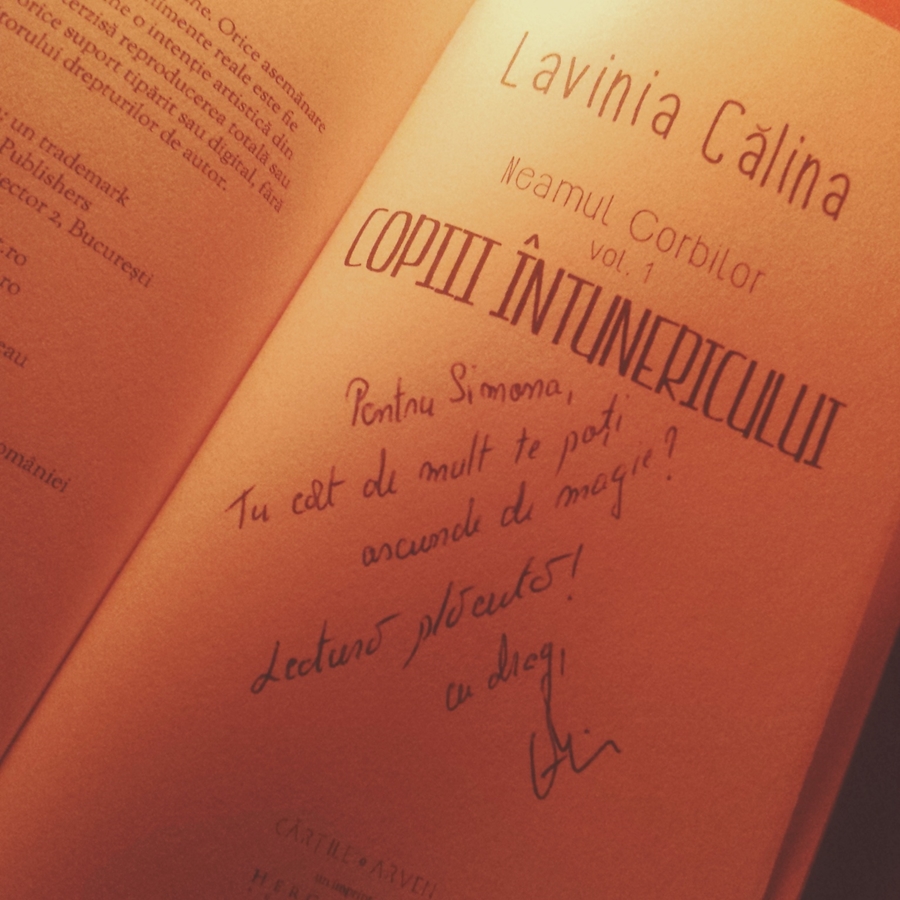 ne. Orice asemănare
nimente reale este fie
ne o intenție artistică din
terzisă reproducerea totală sau
orice suport tipărit sau digital, fără
torului drepturilor de autor.
; un trademark
Publishers
ector 2, București
.ro
ro
eau
omâniei
Lavinia Călina
Neamul Corbilor
vol. 1
COPIII ÎNTUNERICULUI
Pentru Simona,
Tu cât de mult te poți
ascunde de magie?
Lectură plăcută!
cu drag,
CĂRȚILE ARVEN
un imprint
HERG